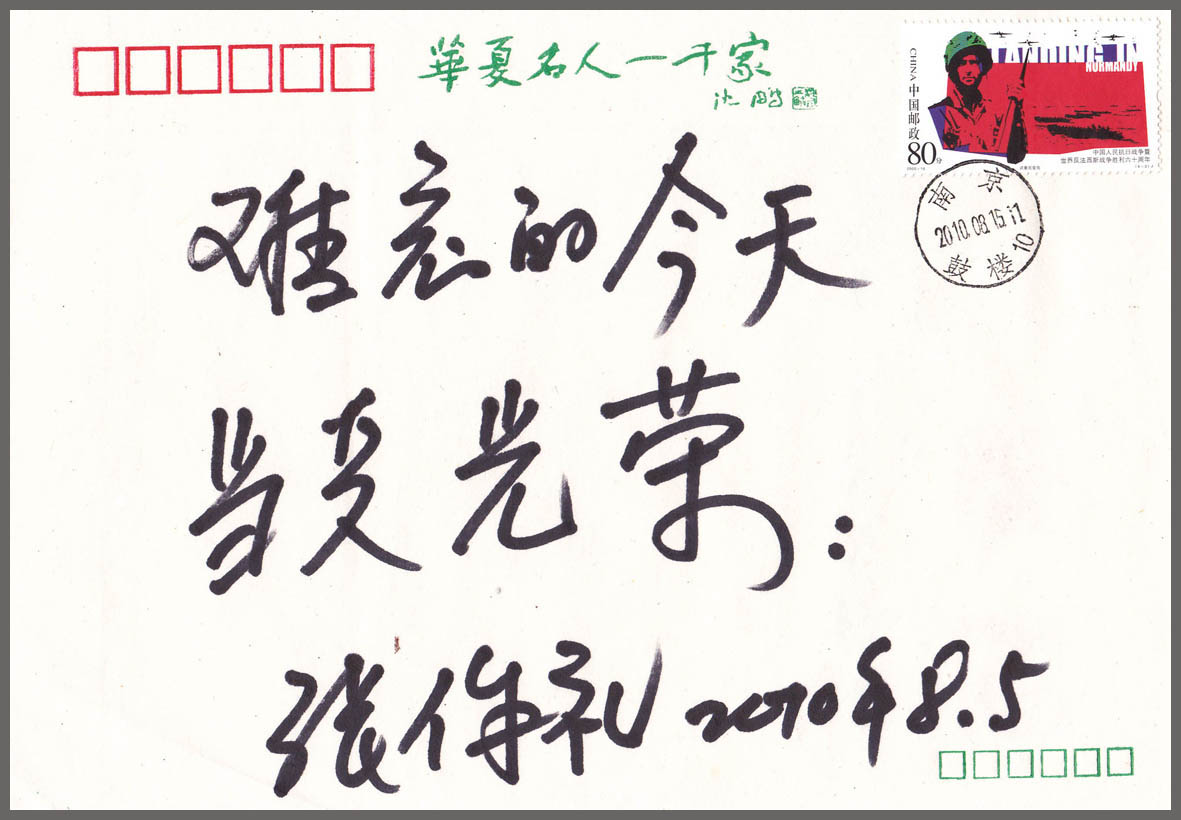 華夏名人一千家
沈鹏
LANDING IN
NORMANDY
CHINA 中国邮政
80分
中国人民抗日战争暨
世界反法西斯战争胜利六十周年
南京
2010.08.15
鼓楼 10
难忘的今天
当受光荣:
张保礼 2010年8.5